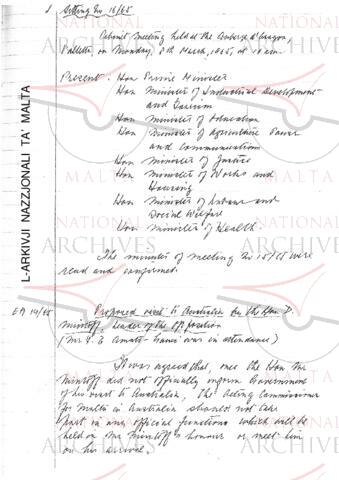 Sitting No. 16/65
Cabinet Meeting held at the Auberge d'Aragon,
Valletta, on Monday, 8th March, 1965, at 10 a.m.
Present: Hon Prime Minister
Hon Minister of Industrial Development
and Tourism
Hon Minister of Education
Hon Minister of Agriculture Power
and Communications
Hon Minister of Justice
Hon Minister of Works and
Housing
Hon Minister of Labour and
Social Welfare
Hon Minister of Health.
The minutes of meeting No 15/65 were
read and confirmed.
EA 14/65 Proposed visit to Australia by the Hon D.
Mintoff, Leader of the Opposition
(Mr. was in attendance)
It was agreed that, once the Hon Mr
Mintoff did not officially inform Government
of his visit to Australia, the Acting Commissioner
for Malta in Australia should not take
part in any official functions which will be
held in Mr Mintoff's honour or meet him
on his arrival.
L-ARKIVJI NAZZJONALI TA' MALTA
NATIONAL ARCHIVES MALTA